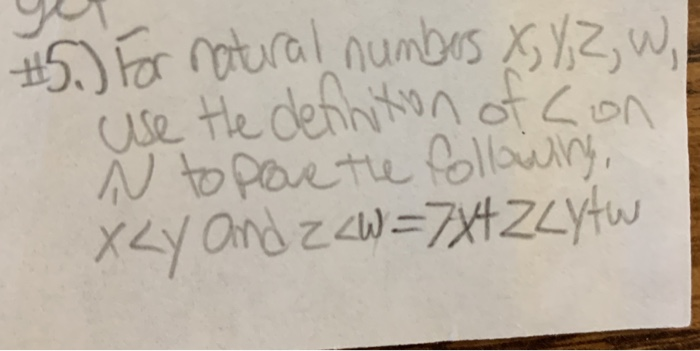 get
#5.) For natural numbers x, y, z, w,
use the definition of < on
N to prove the following.
x<y and z<w => x+z<y+w